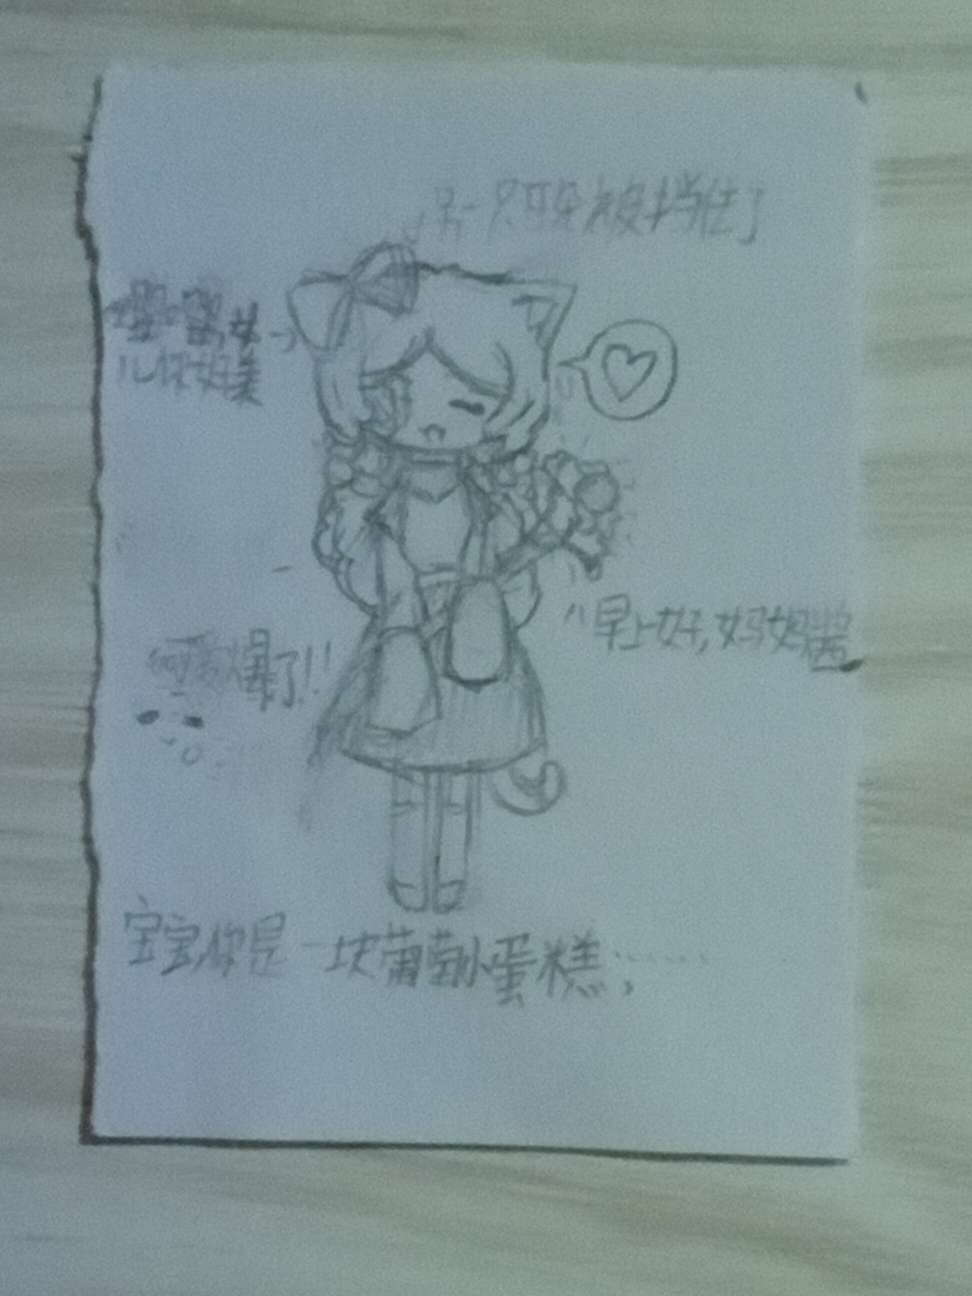 另一只耳朵被挡住了
嘤嘤,女
儿你好美
可爱爆了!!
"早上好,妈妈酱
宝宝你是一块葡萄小蛋糕;……